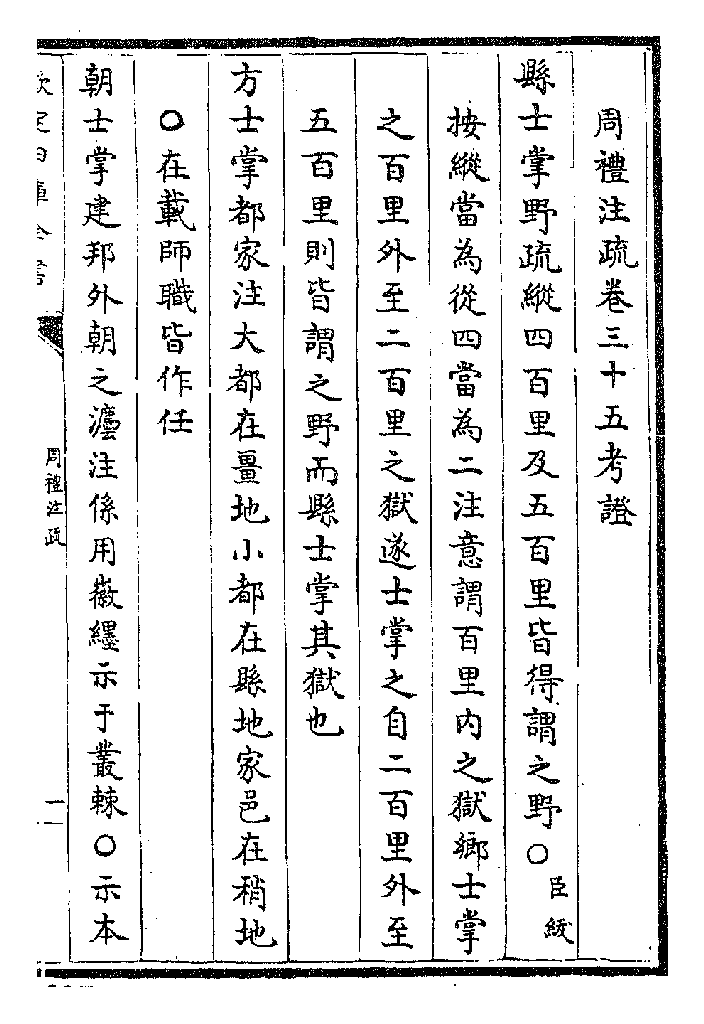 周禮注疏卷三十五考證
縣士掌野疏縱四百里及五百里皆得謂之野〇臣紱
按縱當為從四當為二注意謂百里內之獄鄉士掌
之百里外至二百里之獄遂士掌之自二百里外至
五百里則皆謂之野而縣士掌其獄也
方士掌都家注大都在畺地小都在縣地家邑在稍地
〇在載師職皆作任
朝士掌建邦外朝之灋注係用徽纆示于叢棘〇示本
欽定四庫全書
周禮注疏
一